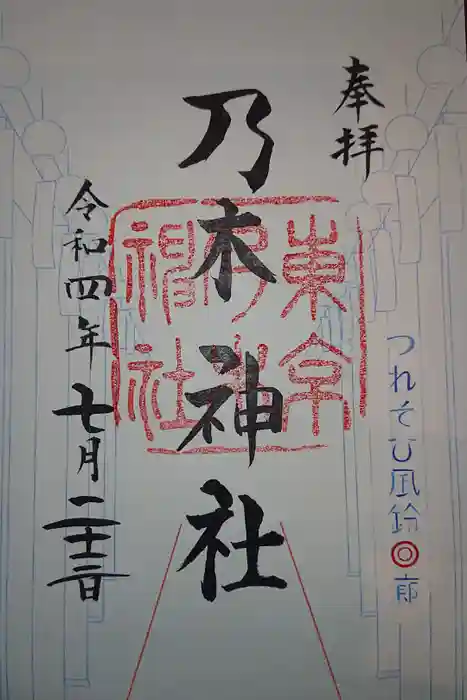 奉拝
つれそひ風鈴回廊
乃木神社
東京乃木神社
令和四年七月二十三日